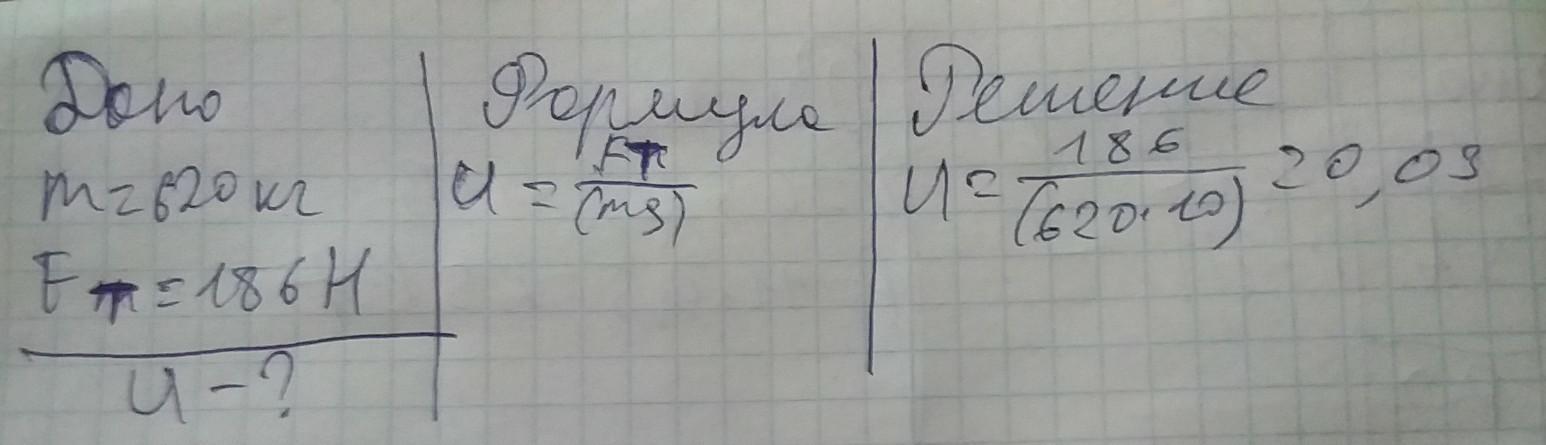 Дано
m=620 кг
Fт=186 Н
u-?
Формула
u = Fт/(mg)
Решение
u= 186/(620·10) =0,03